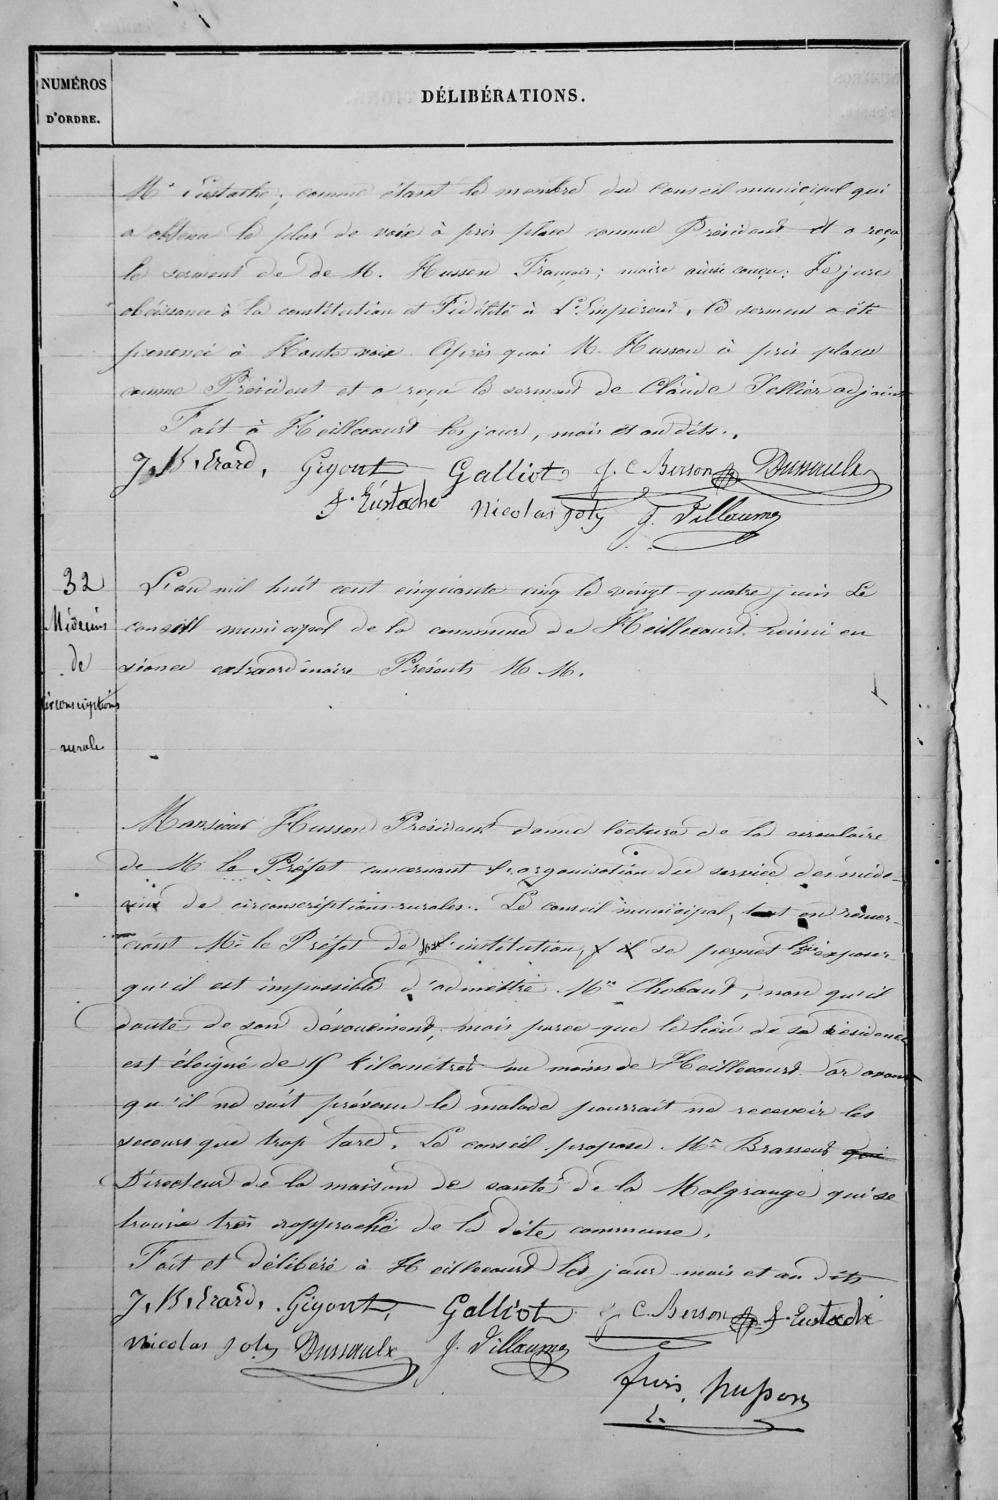 NUMÉROS
D'ORDRE.
DÉLIBÉRATIONS.
Mr Eustache, comme étant le membre du Conseil municipal qui
a obtenu le plus de voix à pris place comme Président et a reçu
le serment de de M. Husson François; maire ainsi conçu: Je jure
obéissance à la constitution et Fidélité à L'Empereur. Ce serment a été
prononcé à Haute voix. Après quoi M. Husson à pris place
comme Président et a reçu le serment de Claude Tellier adjoint
Fait à Heillecourt les jour, mois et an dits.
J. B. Erard. Gigout Galliot J. C. Berson Dussaulx
F. Eustache Nicolas Joly J. Villaume
32
Médecins
de
circonscriptions
rurales
L'an mil huit cent cinquante cinq le vingt-quatre juin Le
conseil municipal de la commune de Heillecourt réuni en
séance extraordinaire Présents M M.
Monsieur Husson Président donne lecture de la circulaire
de M. le Préfet concernant l'organisation du service des méde-
cins de circonscriptions rurales. Le conseil municipal, tout en remer-
ciant Mr le Préfet de l'institution, se permet lui exposer
qu'il est impossible d'admettre Mr Chobaut, non qu'il
doute de son dévouement, mais parce que le lieu de sa résidence
est éloigné de 5 kilomètres au moins de Heillecourt or avant
qu'il ne soit prévenu le malade pourrait ne recevoir les
secours que trop tard. Le conseil propose Mr Brasseur qui
Directeur de la maison de santé de la Malgrange qui se
trouve très rapproché de la dite commune.
Fait et délibéré à Heillecourt les jour mois et an dits
J. B. Erard. Gigout, Galliot J. C. Berson F. Eustache
Nicolas Joly Dussaulx J. Villaume
frois husson